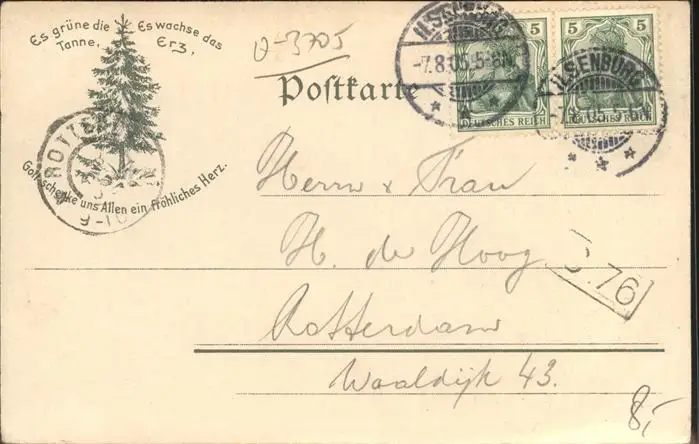 Es grüne die Tanne,
Es wachse das Erz,
Gott schenke uns Allen ein fröhliches Herz.
0-3705
Postkarte
ILSENBURG
-7.8.05.5-6N.
5
5
DEUTSCHES REICH
DEUTSCHES REICH
ILSENBURG
ROTTE
9-10
Herrn & Frau
H. de Hoog
76
Rotterdam
Waaldijk 43.
8,-